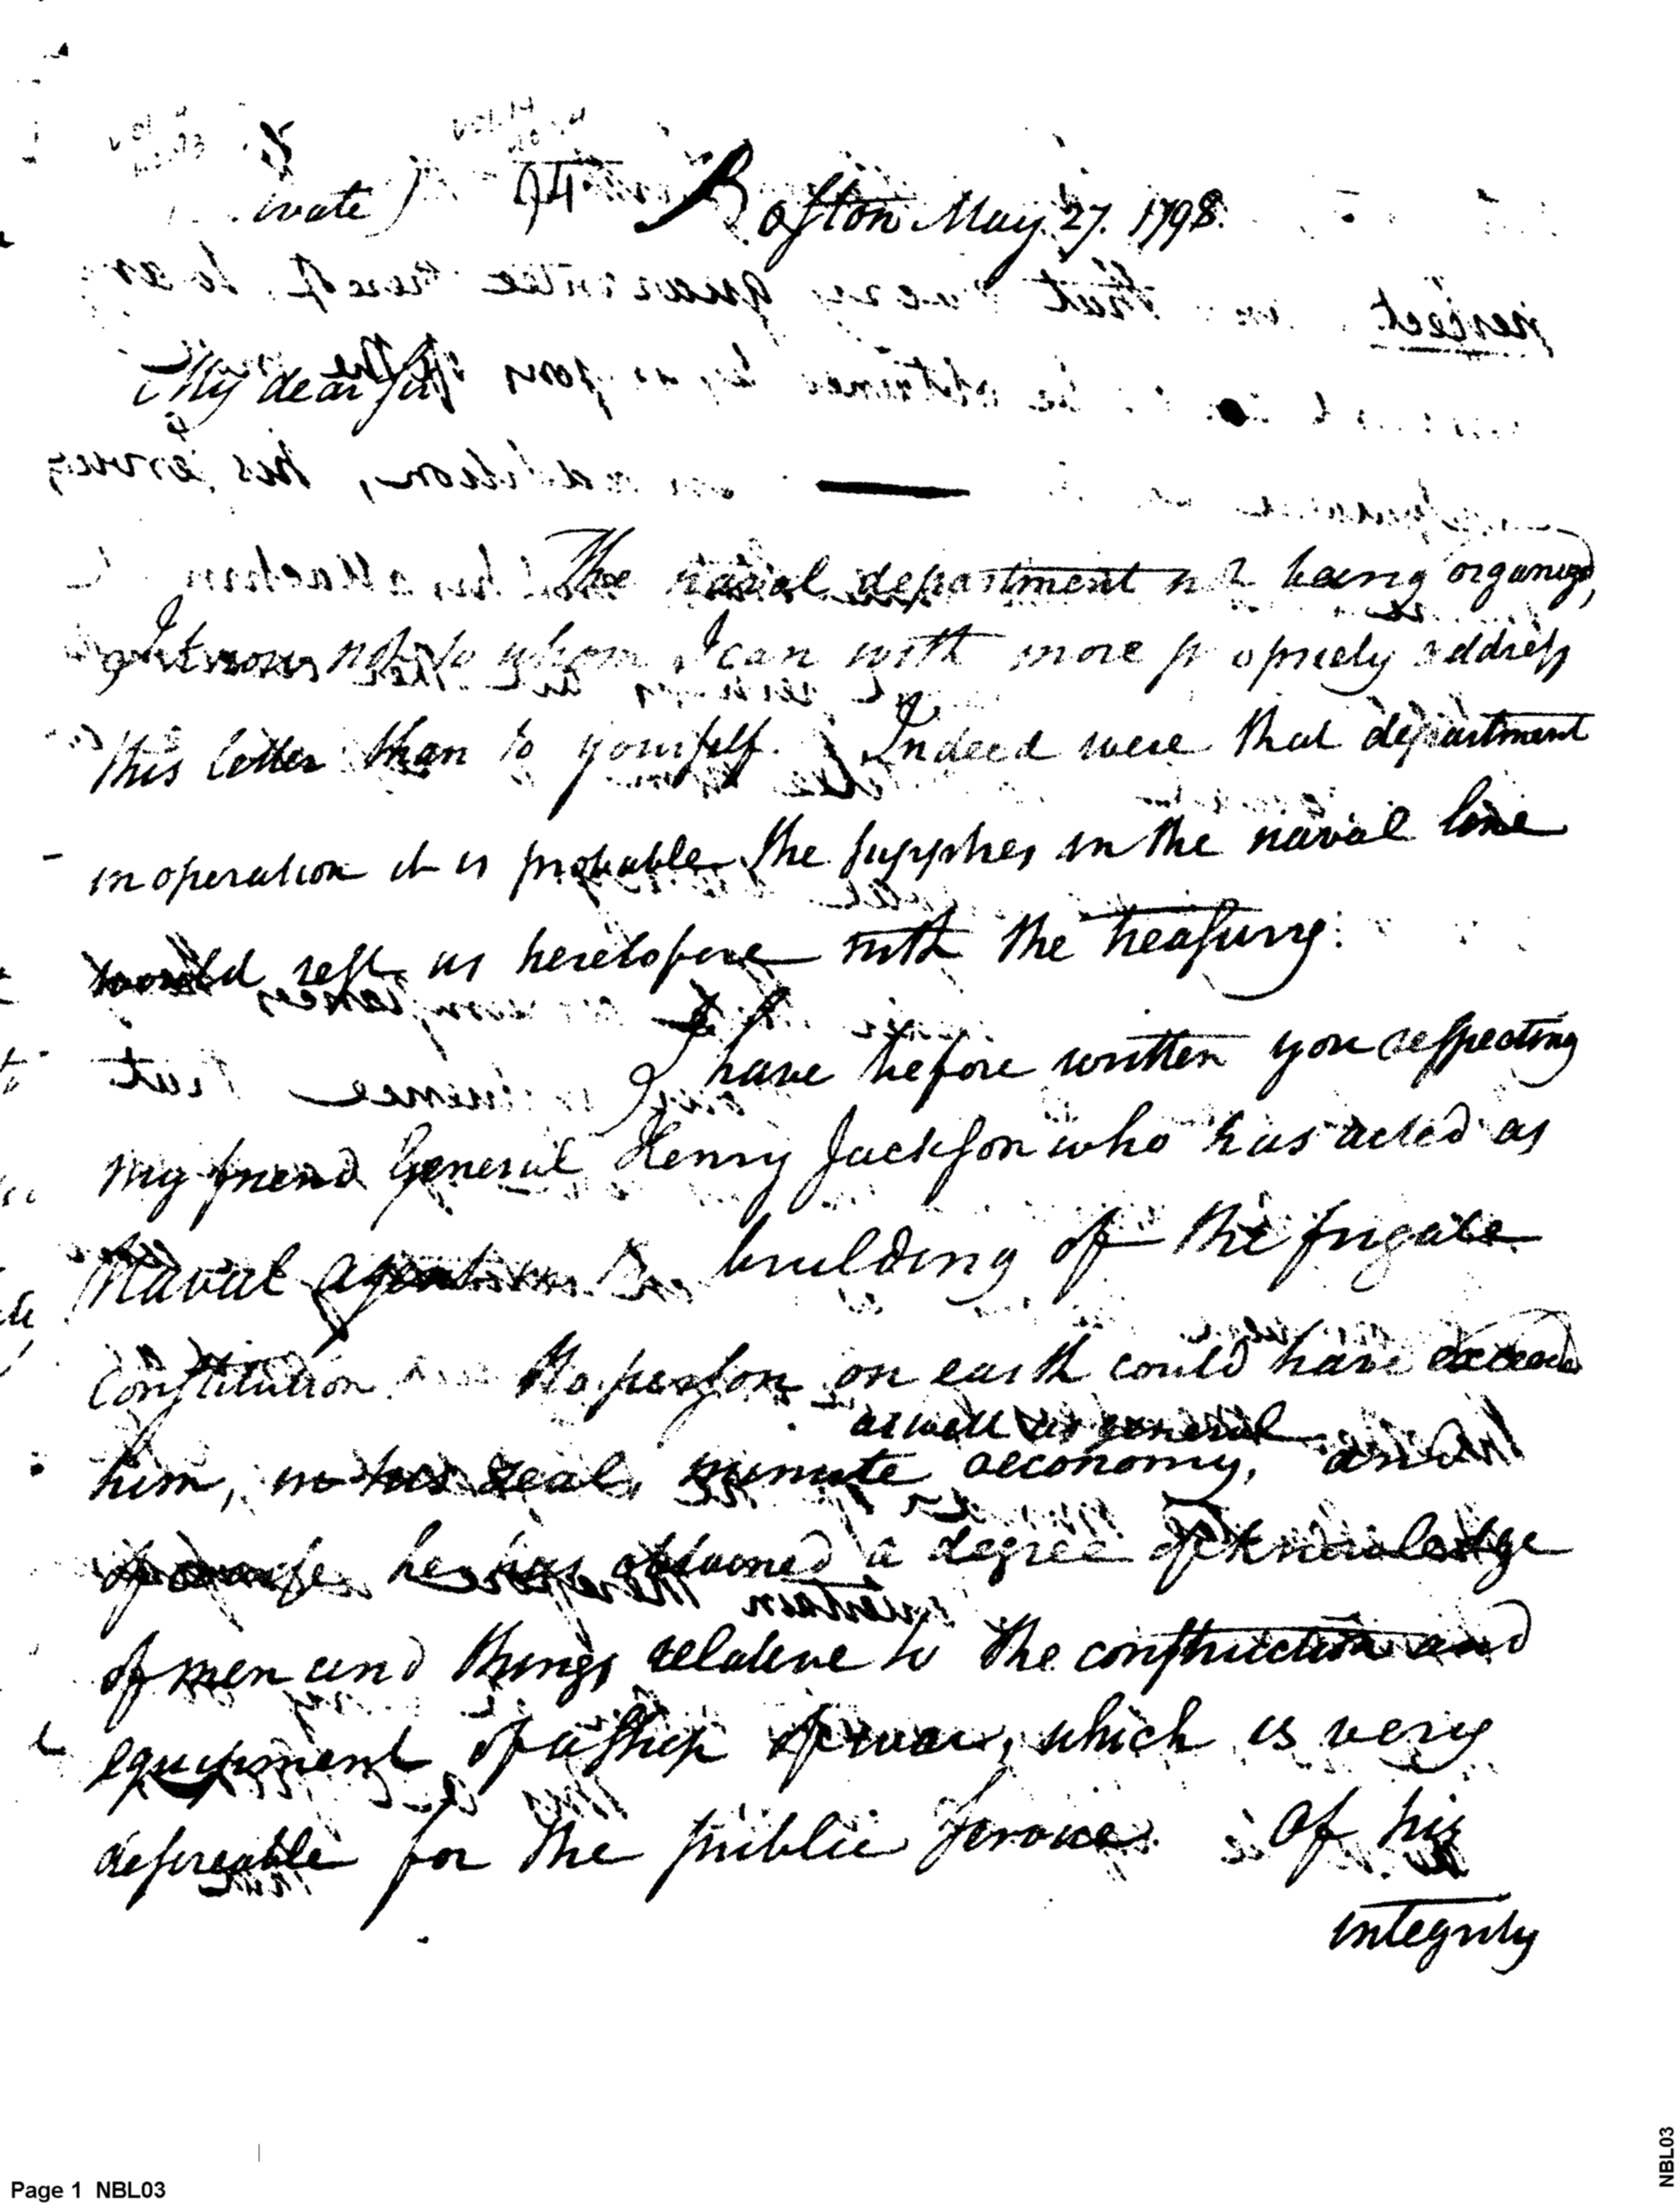 ivate) 94 Boston May. 27. 1798.
My dear sir
The naval department not being organized,
I know not to whom I can with more propriety address
this letter than to yourself. Indeed were that department
in operation it is probable the supplies in the naval line
would rest as heretofore with the treasury.
I have before written you respecting
my friend General Henry Jackson who has acted as
Naval agent in the building of the frigate
Constitution No person on earth could have exceeded
as well as general
him, in his zeal, minute oeconomy, and
of course he has obtained a degree of knowledge
of men and things relative to the construction and
equipment of a ship of war, which is very
desireable for the public service. Of his
integrity
Page 1 NBL03
NBL03